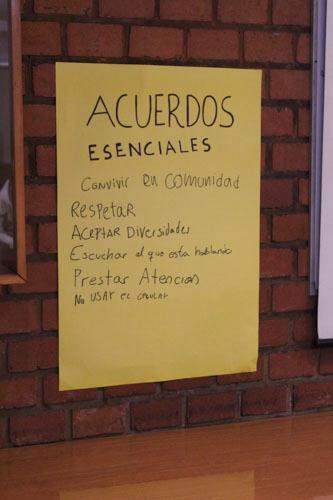 ACUERDOS
ESENCIALES
Convivir en comunidad
Respetar
Aceptar Diversidades
Escuchar al que esta hablando
Prestar Atencion
No usar el celular